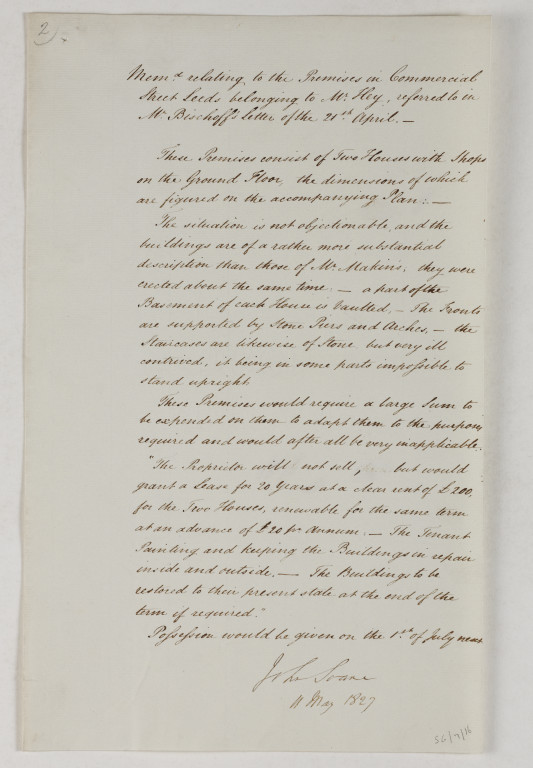 2).
Memd. relating to the Premises in Commercial
Street Leeds belonging to Mr. Hey, referred to in
Mr. Bischoff's letter of the 21st April. —
These Premises consist of Two Houses with Shops
on the Ground Floor, the dimensions of which
are figured on the accompanying Plan: —
The situation is not objectionable, and the
buildings are of a rather more substantial
description than those of Mr. Makin's, they were
erected about the same time — a part of the
Basement of each House is Vaulted, — The Fronts
are supported by Stone Piers and Arches, — the
Staircases are likewise of Stone but very ill
contrived, it being in some parts impossible to
stand upright
These Premises would require a large Sum to
be expended on them to adapt them to the purpose
required and would after all be very inapplicable.
"The Proprietor will not sell, but would
grant a Lease for 20 Years at a clear rent of £200,
for the Two Houses, renewable for the same term
at an advance of £20 pr Annum. — The Tenant
Painting and keeping the Buildings in repair
inside and outside. — The Buildings to be
restored to their present state at the end of the
term if required."
Possession would be given on the 1st of July next
John Soane
11 May 1827